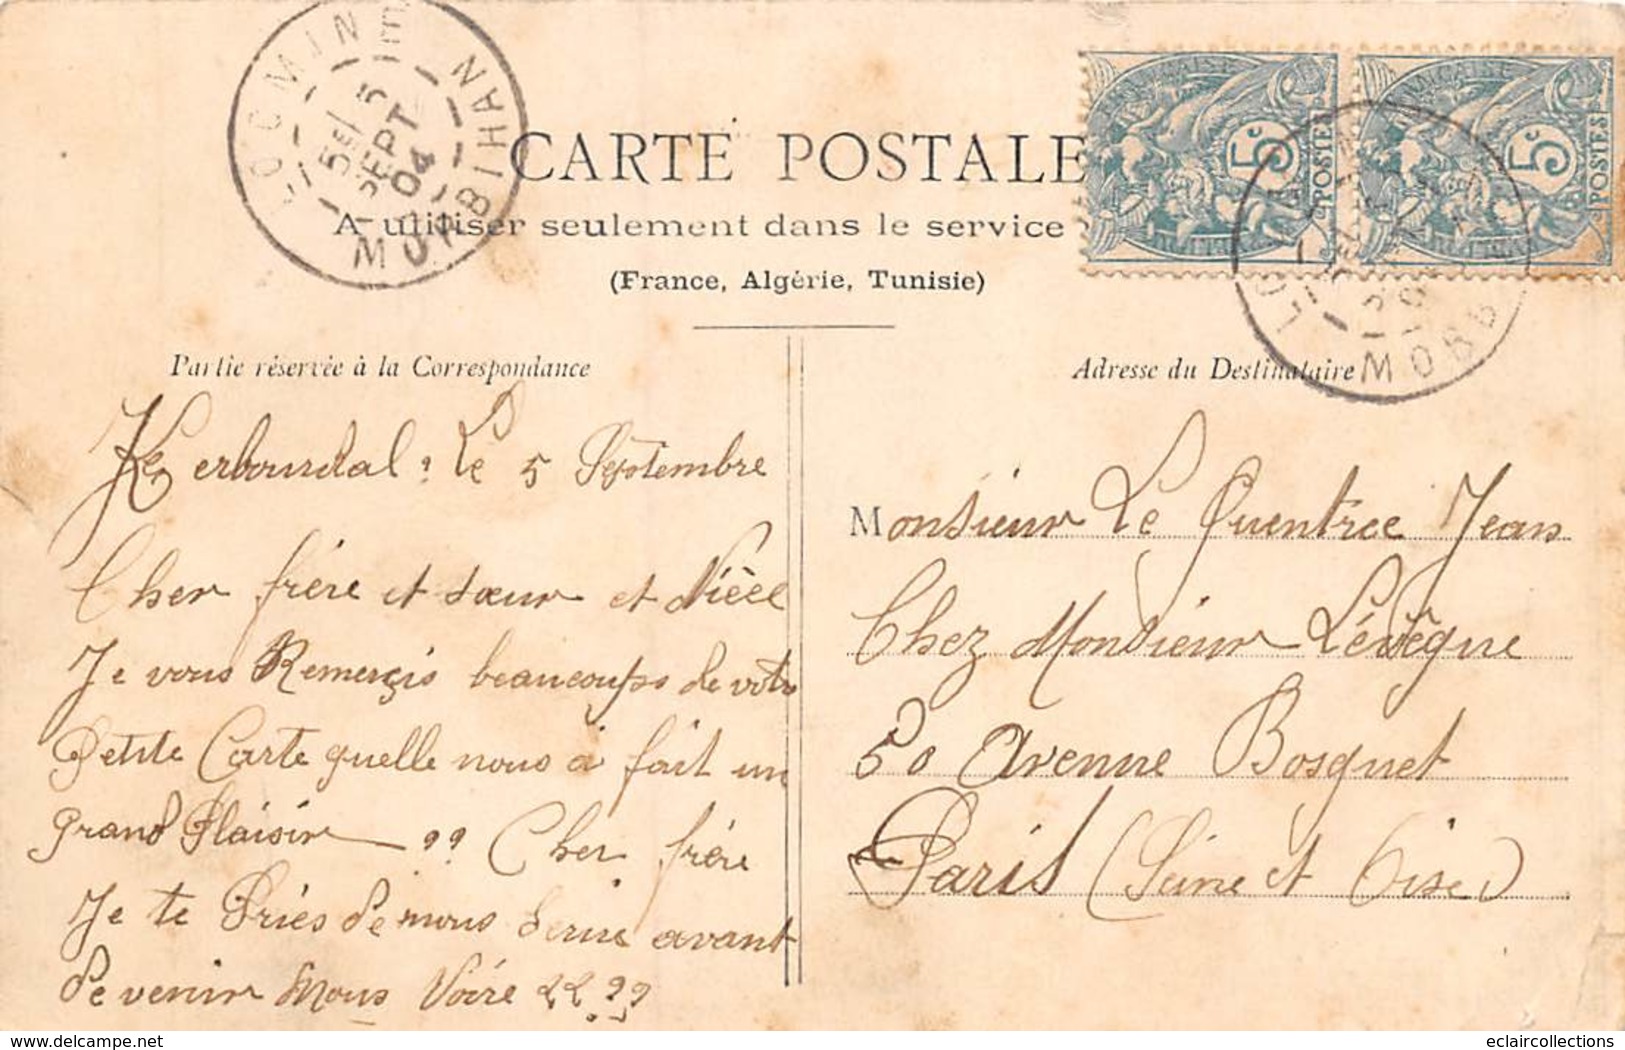 LOCMINÉ
5E/ 5
SEPT
04
MORBIHAN
CARTE POSTALE
A utiliser seulement dans le service
(France, Algérie, Tunisie)
5c
POSTES
5c
POSTES
MORB
Partie réservée à la Correspondance
Kerboundal, Le 5 Septembre
Cher frère et sœur et Nièce
Je vous Remerçis beaucoups de votre
Petite Carte quelle nous á fait un
grand Plaisir Cher frère
Je te Priés de nous Serire avant
de venir nous Voire
Adresse du Destinataire
Monsieur Le Quentrec Jean
Chez Monsieur Lévêque
50 Avenue Bosquet
Paris (Seine et Oise)
eclaircollections